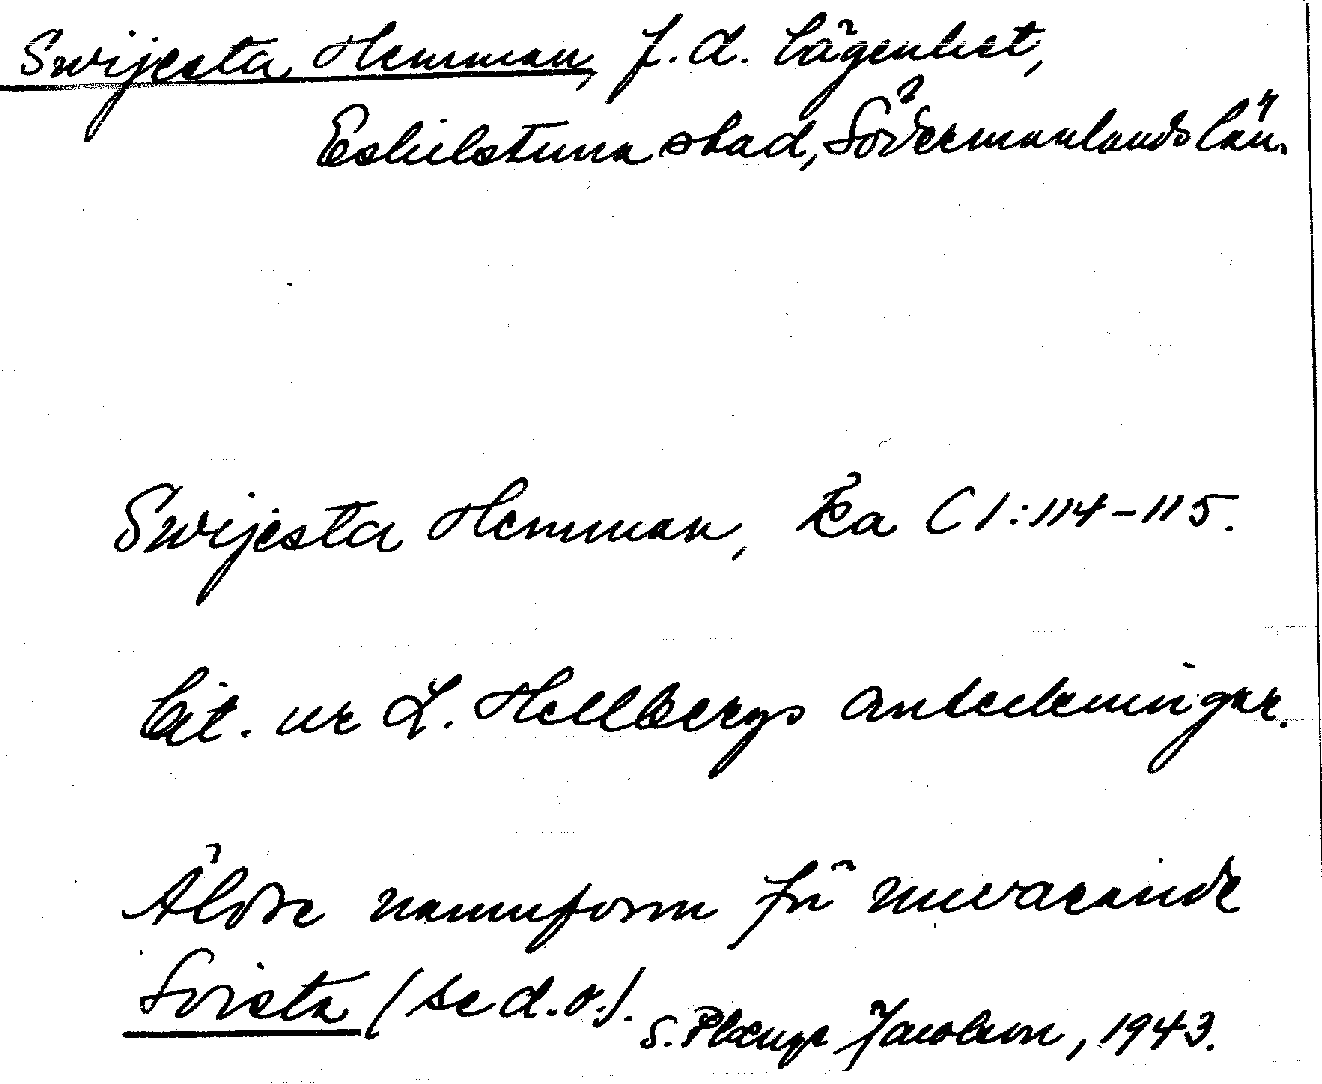 Swijesta Hemman, f.d. lägenhet,
Eskilstuna stad, Södermanlands län.
Swijesta Hemman, Ka C I:114-115.
Cit. ur L. Hellbergs anteckningar.
Äldre namnform för nuvarande
Svista (se d.o.).
S. Jacobson, 1943.